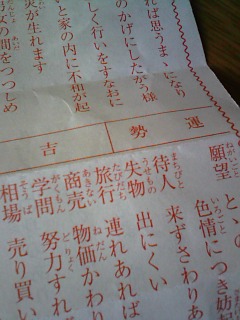 れば思うまゝになり
のかげにしたがう様
しく行いをすなおに
と家の内に不和が起
災が生れます
の間をつつしめ
運勢
吉
願望 と、の
色情につき妨
待人 来ずさわりあ
失物 出にくい
旅行 連れあれば
商売 物価かわり
学問 努力すれ
相場 売り買い